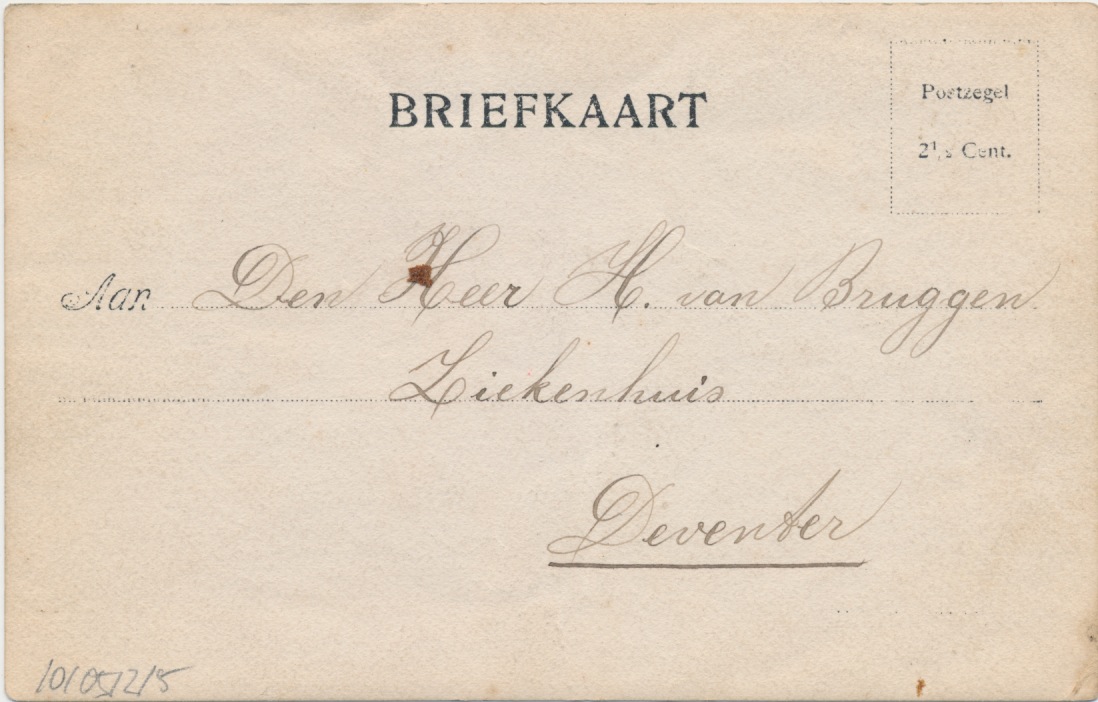 BRIEFKAART
Postzegel
2½ Cent.
Aan Den Heer H. van Bruggen
Ziekenhuis
Deventer